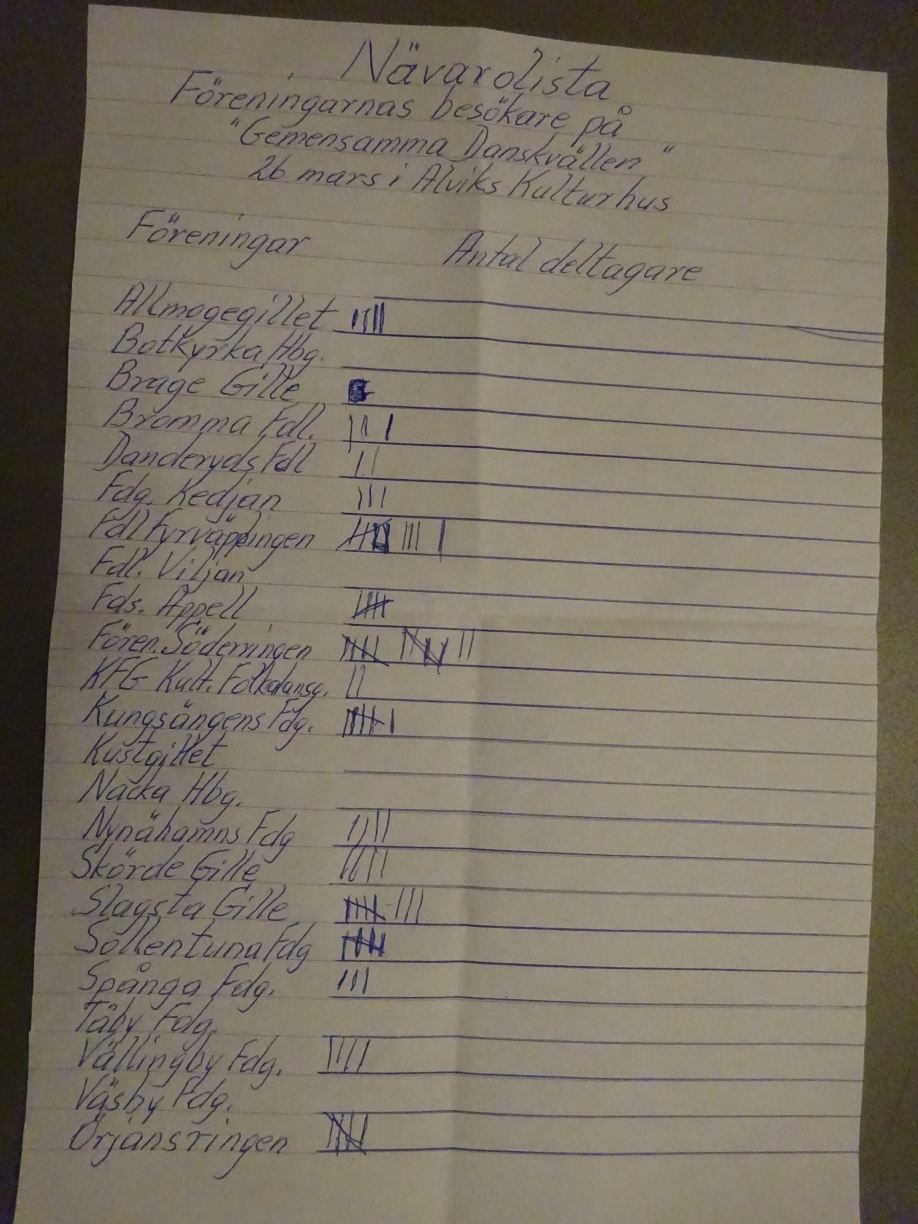 Nävarolista
Föreningarnas besökare på
"Gemensamma Danskvällen"
26 mars i Alviks Kulturhus
Föreningar Antal deltagare
Allmogegillet
Botkyrka Hbg.
Brage Gille
Bromma Fdl.
Danderyds Fdl
Fdg. Kedjan
Fdl Fyrväpplingen
Fdl. Viljan
Fds. Appell
Fören. Söderringen
KFG Kult. Folkdansg.
Kungsängens Fdg.
Kustgillet
Nacka Hbg.
Nynähamns Fdg
Skörde Gille
Slagsta Gille
Sollentuna Fdg
Spånga Fdg.
Täby Fdg.
Vällingby Fdg.
Väsby Fdg.
Örjansringen